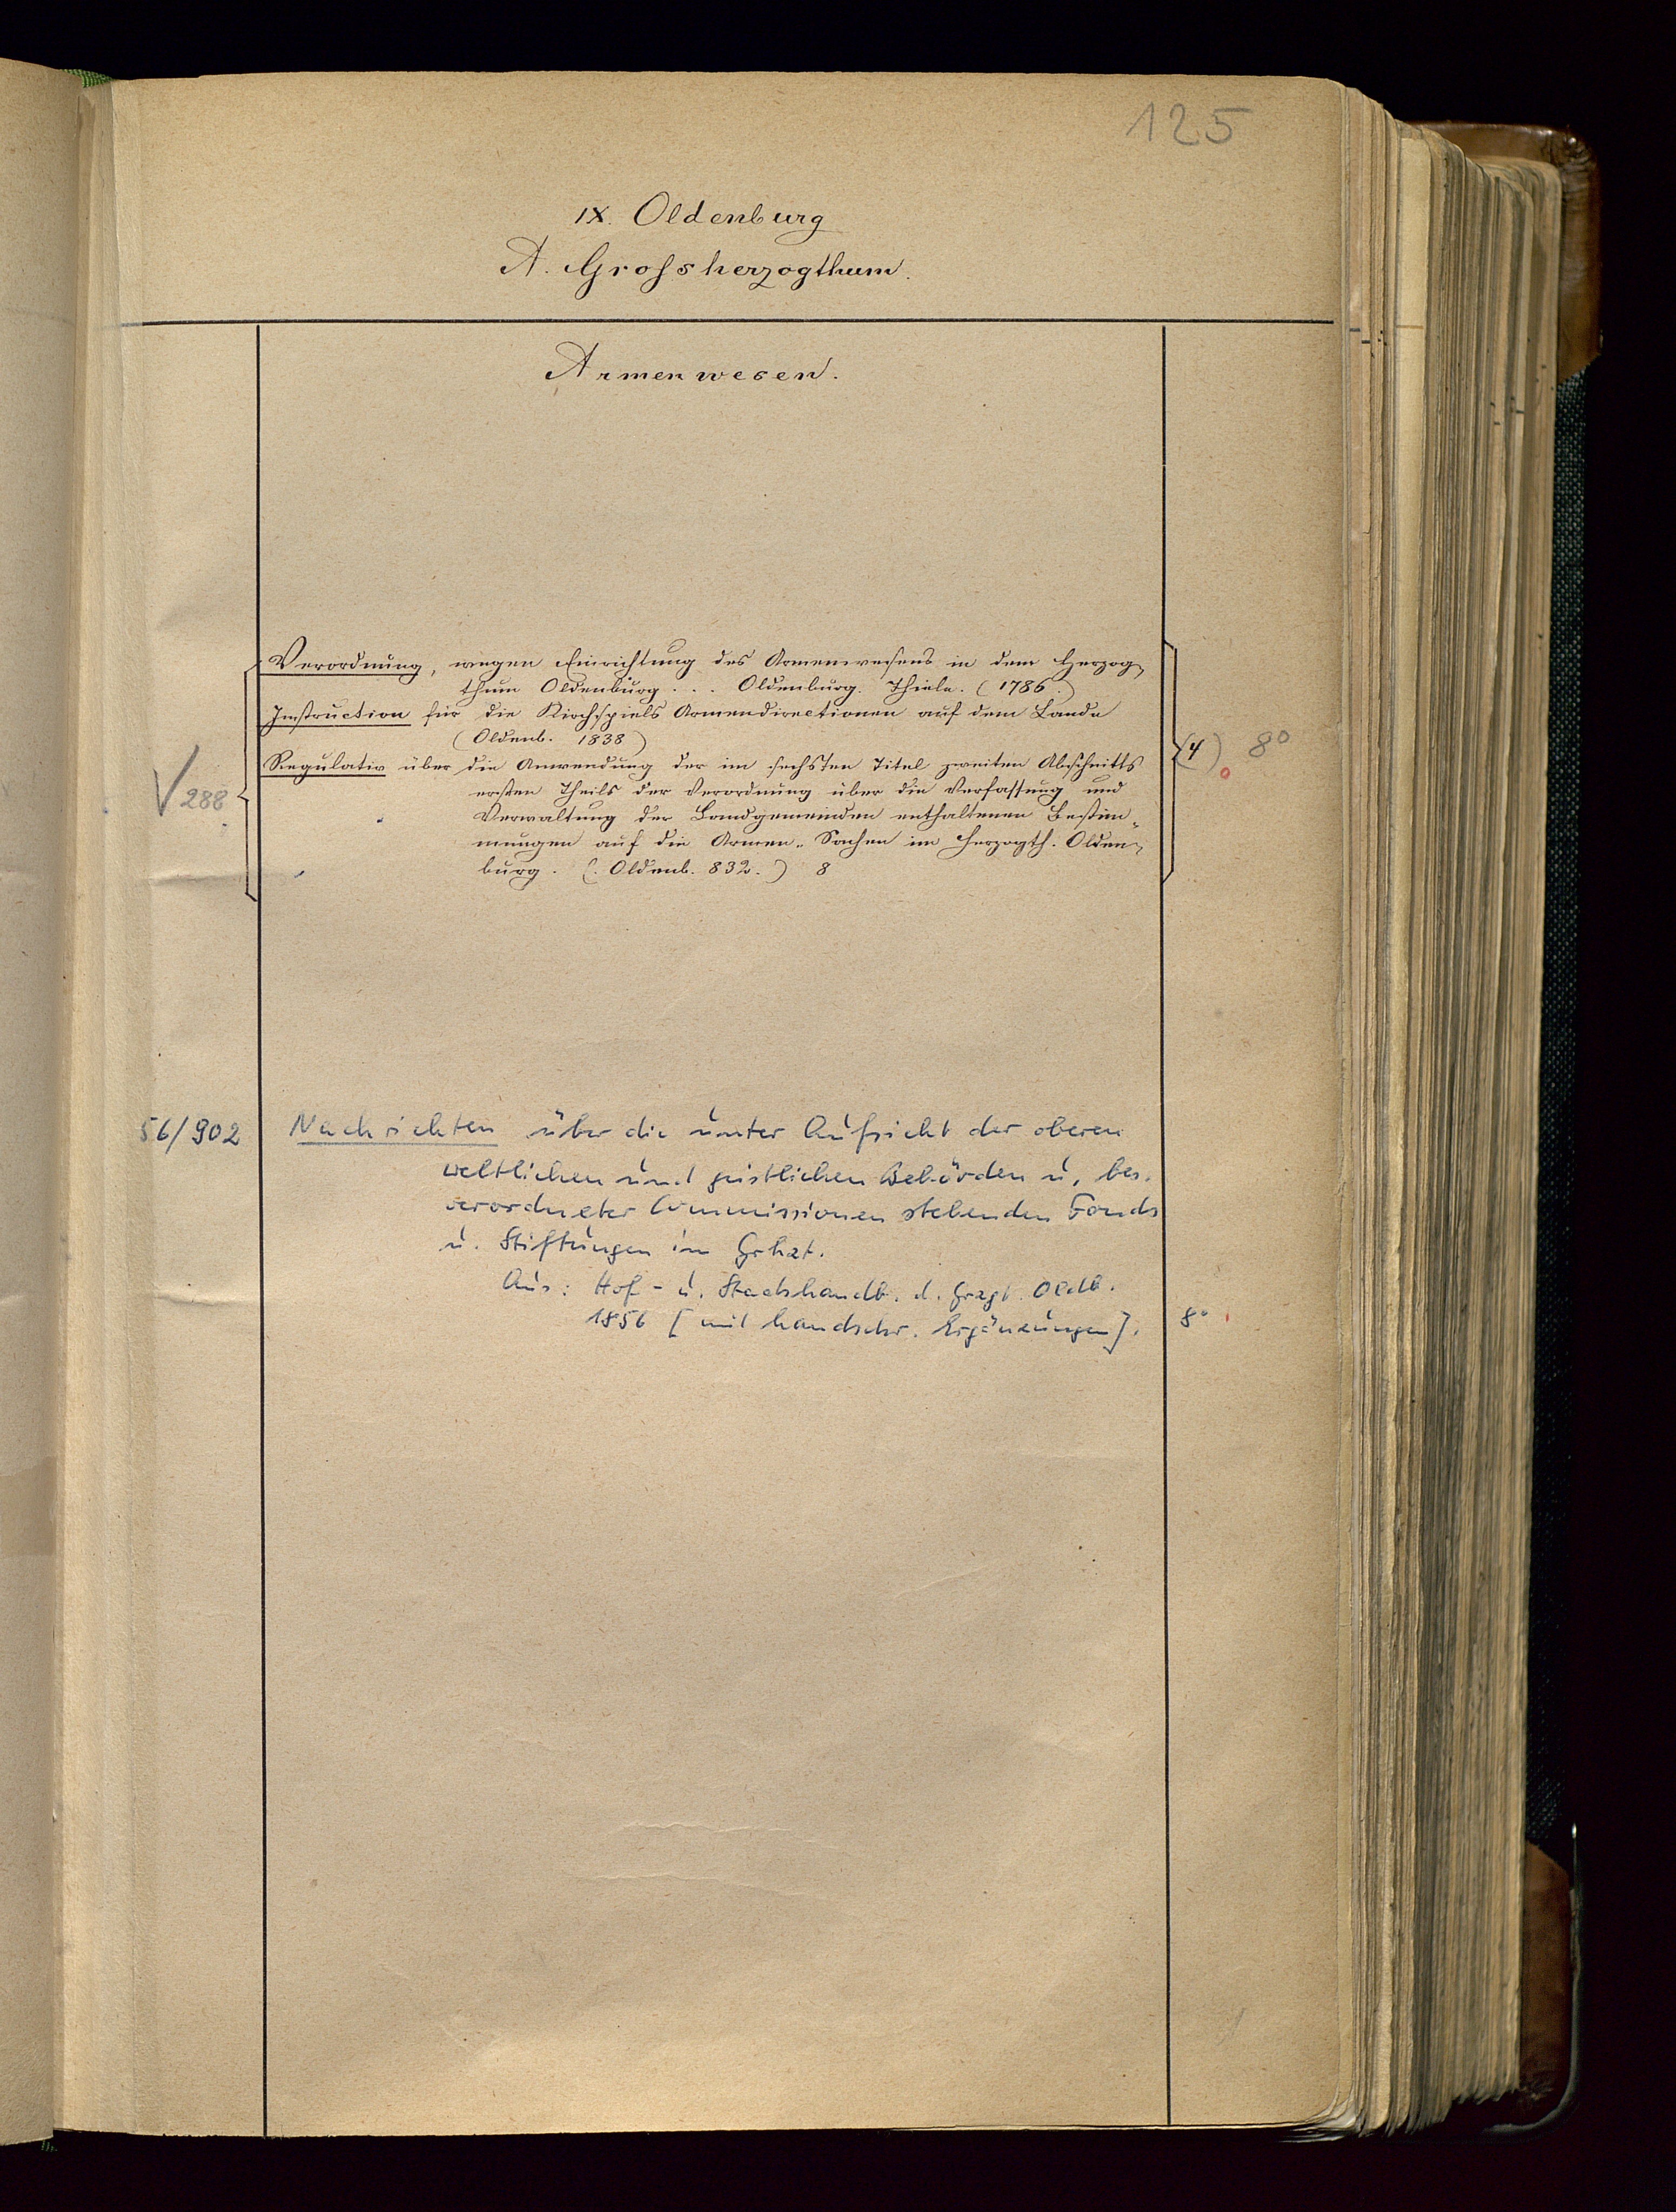 125
IX. Oldenburg
A. Grossherzogthum.
Armenwesen.
Verordnung, wegen Einrichtung des Armenwesens in dem Herzog-
thum Oldenburg ... Oldenburg. Thiele. (1786.)
Instruction für die Kirchspiels Armendirectionen auf dem Lande
(Oldenb. 1838)
(4) 8°
Regulativ über die Anwendung der im sechsten Titel zweiten Abschnitts
V 288
ersten Theils der Verordnung über die Verfassung und
Verwaltung der Landgemeinden enthaltenen Bestim-
mungen auf die Armen-Sachen im Herzogth. Olden-
burg. (Oldenb. 832.) 8
56/902 Nachrichten über die unter Aufsicht der oberen
weltlichen und geistlichen Behörden u. bes.
verordneter Commissionen stehenden Fonds
u. Stiftungen im Grhzt.
Aus: Hof- u. Staatshandb. d. Grzgt. Oldb.
1856 [mit handschr. Ergänzungen]. 8°